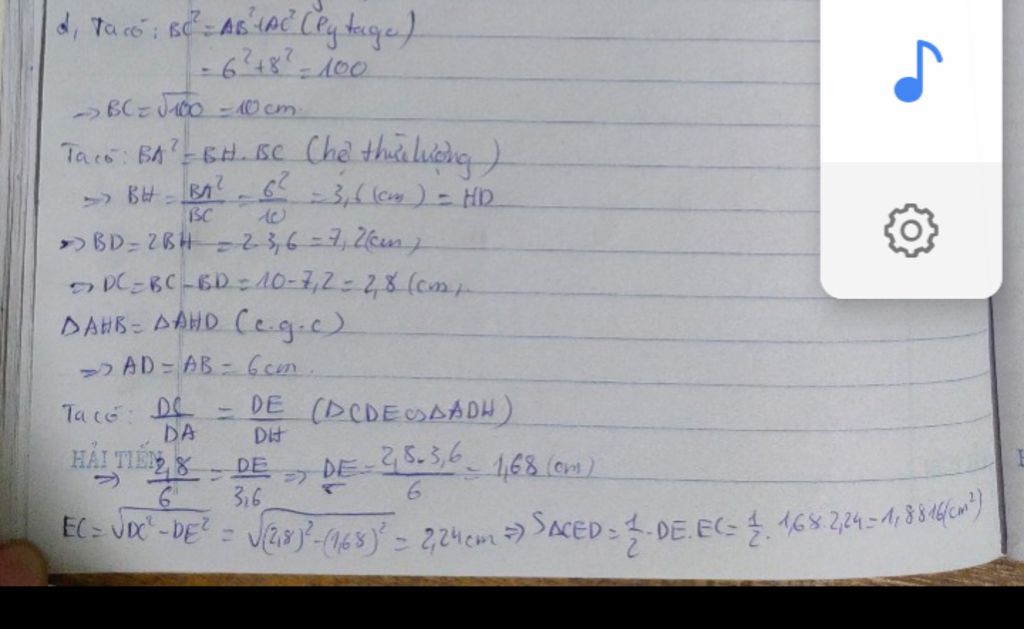 d, Ta có: BC² = AB² + AC² (Pytago)
= 6² + 8² = 100
=> BC = √100 = 10 cm.
Ta có: BA² = BH. BC (hệ thức lượng)
=> BH = BA²/BC = 6²/10 = 3,6 (cm) = HD
=> BD = 2BH = 2.3,6 = 7,2 (cm)
=> DC = BC - BD = 10 - 7,2 = 2,8 (cm).
ΔAHB = ΔAHD (c.g.c)
=> AD = AB = 6cm.
Ta có: DC/DA = DE/DH (ΔCDE ∽ ΔADH)
HẢI TIẾN
=> 2,8/6 = DE/3,6 => DE = 2,8.3,6/6 = 1,68 (cm)
EC = √DC² - DE² = √(2,8)² - (1,68)² = 2,24 cm => SΔCED = 1/2 . DE. EC = 1/2 . 1,68.2,24 = 1,8816 (cm²)